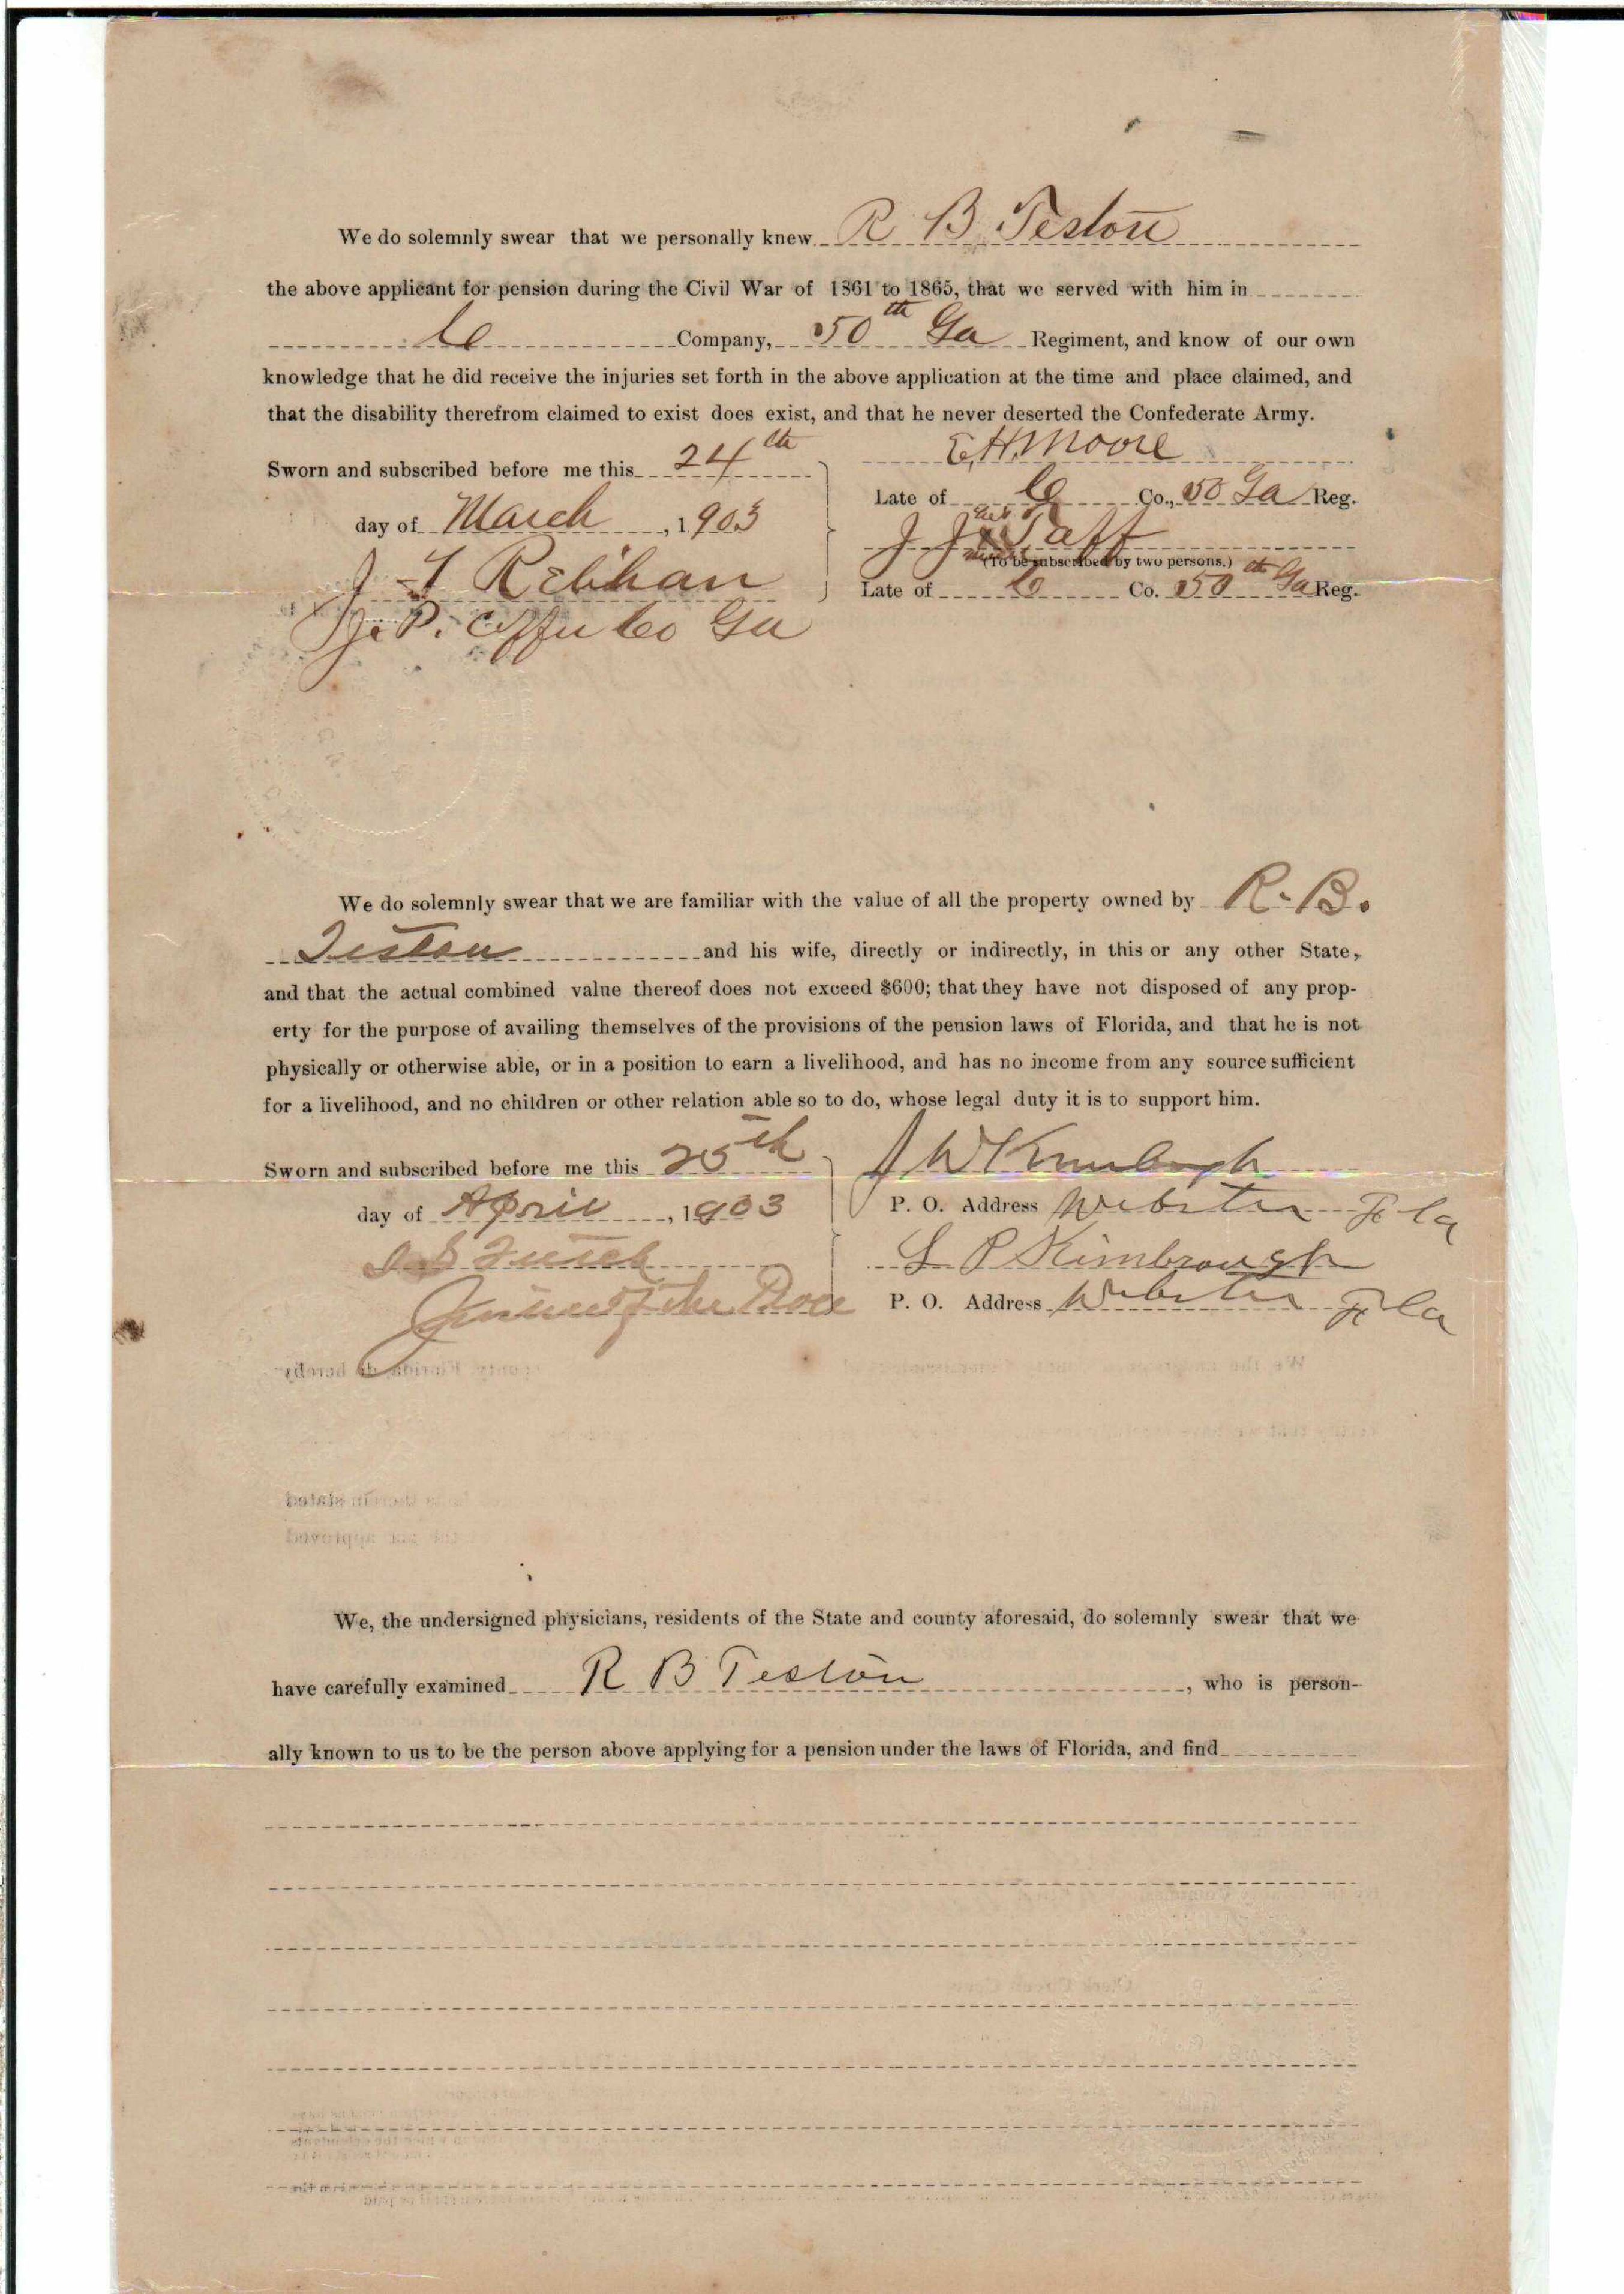 We do solemnly swear that we personally knew R B Teston
the above applicant for pension during the Civil War of 1861 to 1865, that we served with him in
C Company, 50th Ga Regiment, and know of our own
knowledge that he did receive the injuries set forth in the above application at the time and place claimed, and
that the disability therefrom claimed to exist does exist, and that he never deserted the Confederate Army.
E.H. Moore
Sworn and subscribed before me this 24th
Late of C Co., 50 Ga Reg.
day of March, 1903
J J Taff
(To be subscribed by two persons.)
J T Rebhan
Late of C Co. 50th Ga Reg.
Co Ga
We do solemnly swear that we are familiar with the value of all the property owned by R. B.
Teston and his wife, directly or indirectly, in this or any other State,
and that the actual combined value thereof does not exceed $600; that they have not disposed of any prop-
erty for the purpose of availing themselves of the provisions of the pension laws of Florida, and that he is not
physically or otherwise able, or in a position to earn a livelihood, and has no income from any source sufficient
for a livelihood, and no children or other relation able so to do, whose legal duty it is to support him.
Sworn and subscribed before me this 25th
J W Kimbrough
day of April, 1903
P. O. Address Webster Fla
L P Kimbrough
P. O. Address Webster Fla
We, the undersigned physicians, residents of the State and county aforesaid, do solemnly swear that we
have carefully examined R B Teston, who is person-
ally known to us to be the person above applying for a pension under the laws of Florida, and find